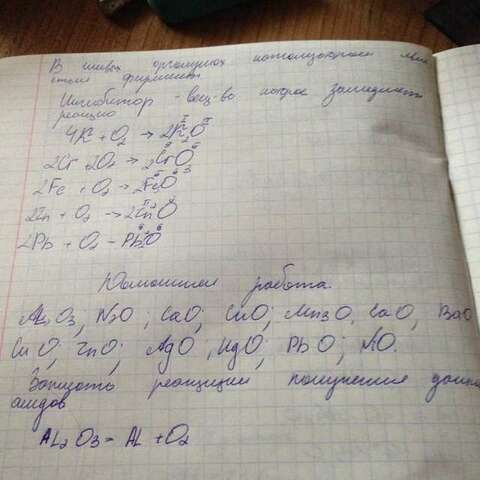 В живых организмах катализаторами
ферменты
Ингибитор - вещ-во которое замедляет
реакцию
4K + O2 → 2K2O
2Cr O2 → 2CrO
2Fe + O2 → 2FeO
2Zn + O2 → 2ZnO
2Pb + O2 - PbO
Домашняя работа.
Al2O3, N2O; CaO; CuO; Mn3O, CaO, BaO
CuO; ZnO; AgO, HgO; PbO; NO.
Записать реакции получения
оксидов
AL2O3 = AL + O2